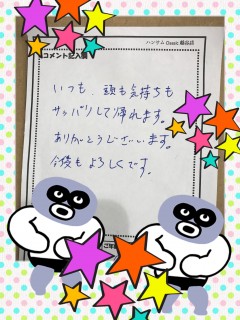 ハンサム Classic 越谷店
コメント記入欄
いつも、頭も気持ちも
サッパリして帰れます。
ありがとうございます。
今後もよろしくです。